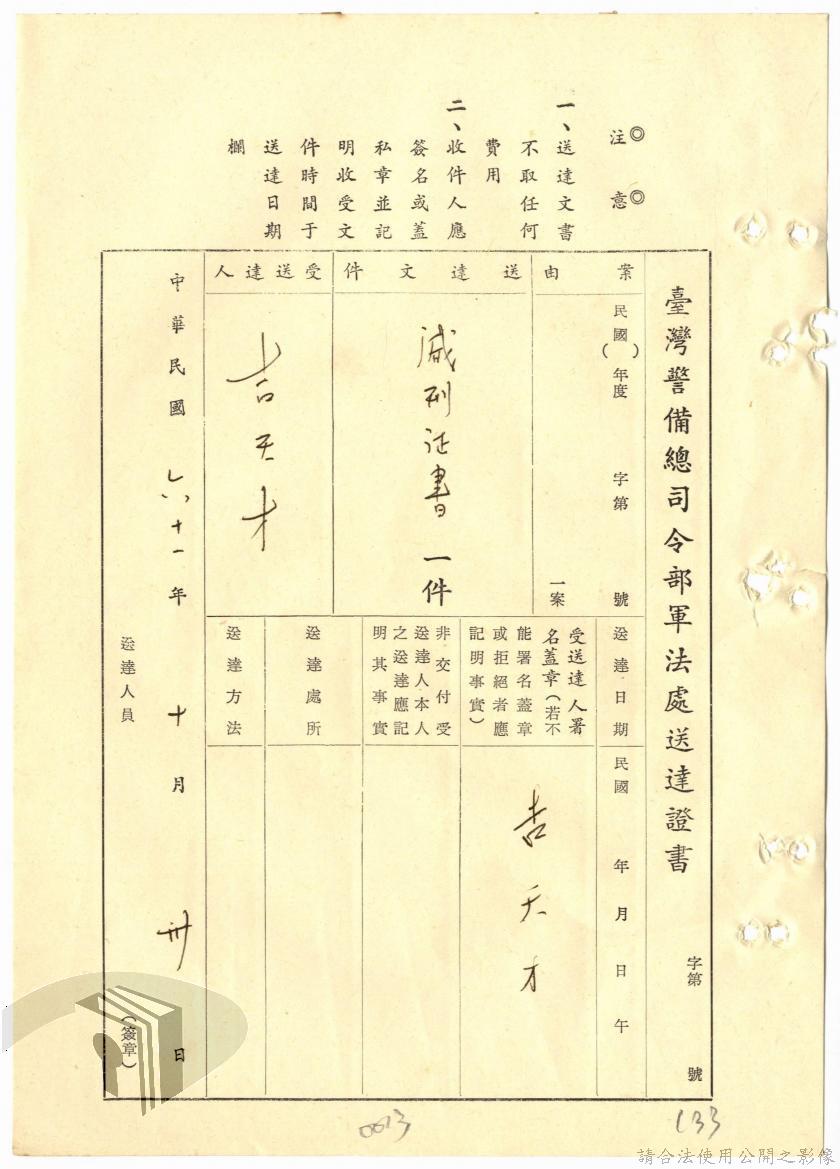 臺灣警備總司令部軍法處送達證書
字第 號
◎注 意◎
一、送達文書
不取任何
費用
二、收件人應
簽名或蓋
私章並記
明收受文
件時間于
送達日期
欄
案由
民國( )年度 字第 號
一案
送達文件
減刑证書 一件
受送達人
吉天才
送達日期
民國 年 月 日 午
受送達人署
名蓋章(若不
能署名蓋章
或拒絕者應
記明事實)
吉天才
非交付受
送達人本人
之送達應記
明其事實
送達處所
送達方法
中華民國 六十一年 十月 卅日
送達人員 (簽章)
0013
133
請合法使用公開之影像